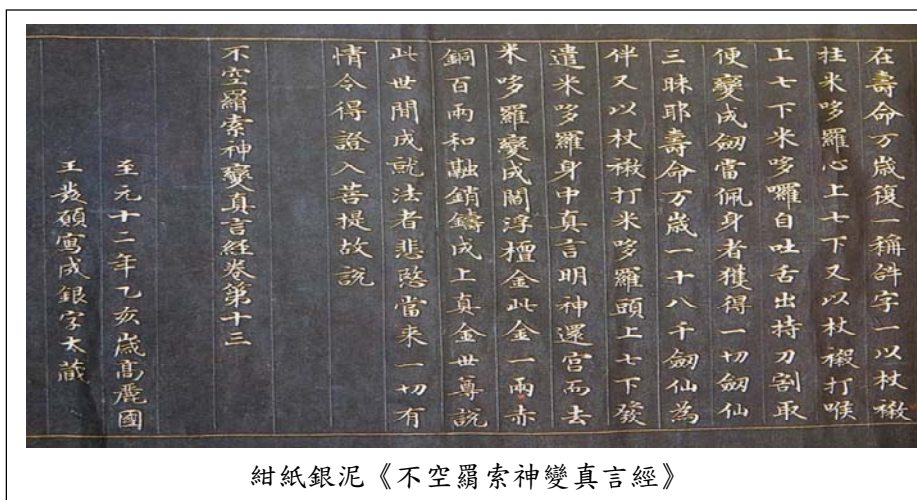 在壽命万歲復一稱𤙖字一以杖橵
拄米哆羅心上七下又以杖橵打喉
上七下米哆囉自吐舌出持刀割取
便變成劒當佩身者獲得一切劒仙
三昧耶壽命万歲一十八千劒仙為
伴又以杖橵打米哆羅頭上七下發
遣米哆羅身中真言明神還宮而去
米哆羅變成閻浮檀金此金一兩赤
銅百兩和融銷鑄成上真金世尊說
此世間成就法者悲愍當来一切有
情令得證入菩提故說
不空羂索神變真言經卷第十三
至元十二年乙亥歲高麗國
王發願寫成銀字大藏
紺紙銀泥《不空羂索神變真言經》